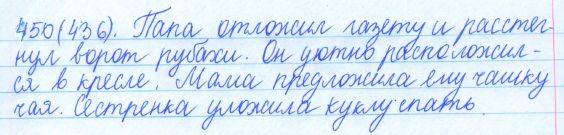 450(436). Папа отложил газету и расстег-
нул ворот рубахи. Он уютно расположил-
ся в кресле. Мама предложила ему чашку
чая. Сестренка уложила куклу спать.